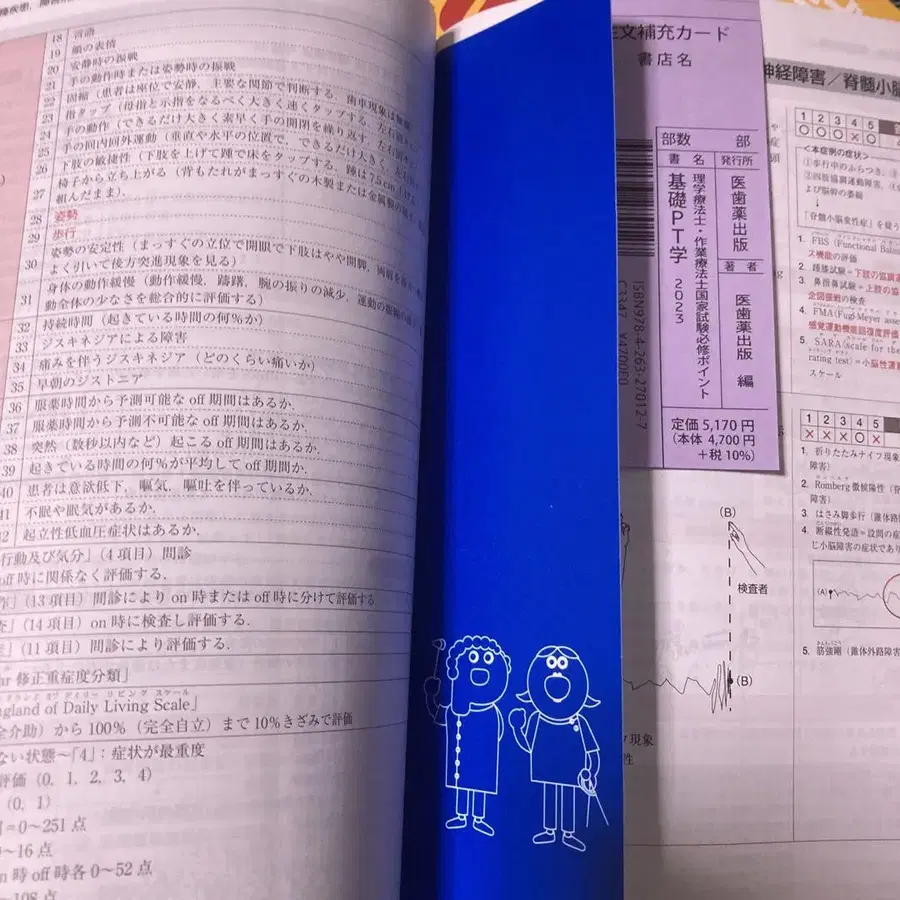 18 言語
19 顔の表情
20 安静時の振戦
21 手の動作時または姿勢時の振戦
22 固縮（患者は座位で安静．主要な関節で判断する．歯車現象は無視
23 指タップ（母指と示指をなるべく大きく速くタップする．左右別
24 手の動作（できるだけ大きく素早く手の開閉を繰り返す．左右
25 手の回内回外運動（垂直や水平の位置で，できるだけ大きく．左右
26 下肢の敏捷性（下肢を上げて踵で床をタップする．踵は7.5cm上げ
27 椅子から立ち上がる（背もたれがまっすぐの木製または金属製の
組んだまま）．
28 姿勢
29 歩行
30 姿勢の安定性（まっすぐの立位で開眼で下肢はやや開脚．両肩を
よく引いて後方突進現象を見る）
31 身体の動作緩慢（動作緩慢，躊躇，腕の振りの減少，運動の振幅の
動全体の少なさを総合的に評価する）
32 持続時間（起きている時間の何％か）
33 ジスキネジアによる障害
34 痛みを伴うジスキネジア（どのくらい痛いか）
35 早朝のジストニア
36 服薬時間から予測可能な off 期間はあるか．
37 服薬時間から予測不可能な off 期間はあるか．
38 突然（数秒以内など）起こる off 期間はあるか．
39 起きている時間の何％が平均して off 期間か．
40 患者は意欲低下，嘔気，嘔吐を伴っているか．
41 不眠や眠気があるか．
42 起立性低血圧症状はあるか．
行動及び気分」（4 項目）問診
off 時に関係なく評価する．
（13 項目）問診により on 時または off 時に分けて評価する
」（14 項目）on 時に検査し評価する．
」（11 項目）問診により評価する．
ar 修正重症度分類」
ngland of Daily Living Scale」
全介助）から 100％（完全自立）まで 10％きざみで評価
ない状態～「4」：症状が最重度
評価（0，1，2，3，4）
（0，1）
＝0～251 点
～16 点
n 時 off 時各 0～52 点
～108 点
文補充カード
書店名
部数 部
書名 理学療法士・作業療法士国家試験必修ポイント
基礎PT学 2023
発行所 医歯薬出版
著者 医歯薬出版 編
ISBN978-4-263-27012-7
C3347 ¥4700E
定価 5,170 円
（本体 4,700 円
＋税 10%）
神経障害／脊髄小脳
1 2 3 4 5
○ ○ ○ × ○
＜本症例の症状＞
①歩行中のふらつき，
②四肢協調運動障害，
および脳幹の萎縮
↓
「脊髄小脳変性症」を疑う
1. FBS（Functional Balan
ス機能の評価
2. 踵膝試験＝下肢の協調
3. 鼻指鼻試験＝上肢の協
企図振戦の検査
4. FMA（Fugl-Meyer asse
感覚運動機能回復度評価
5. SARA（scale for the
rating test）＝小脳性運動
スケール
1 2 3 4 5
× × × ○ ×
1. 折りたたみナイフ現象
障害）
2. Romberg 徴候陽性（脊
障害）
3. はさみ脚歩行（錐体路障
4. 断綴性発語＝設問の症
じ小脳障害の症状であり
(A)
5. 筋強剛（錐体外路障害
(B)
検査者
(B)
現象
性